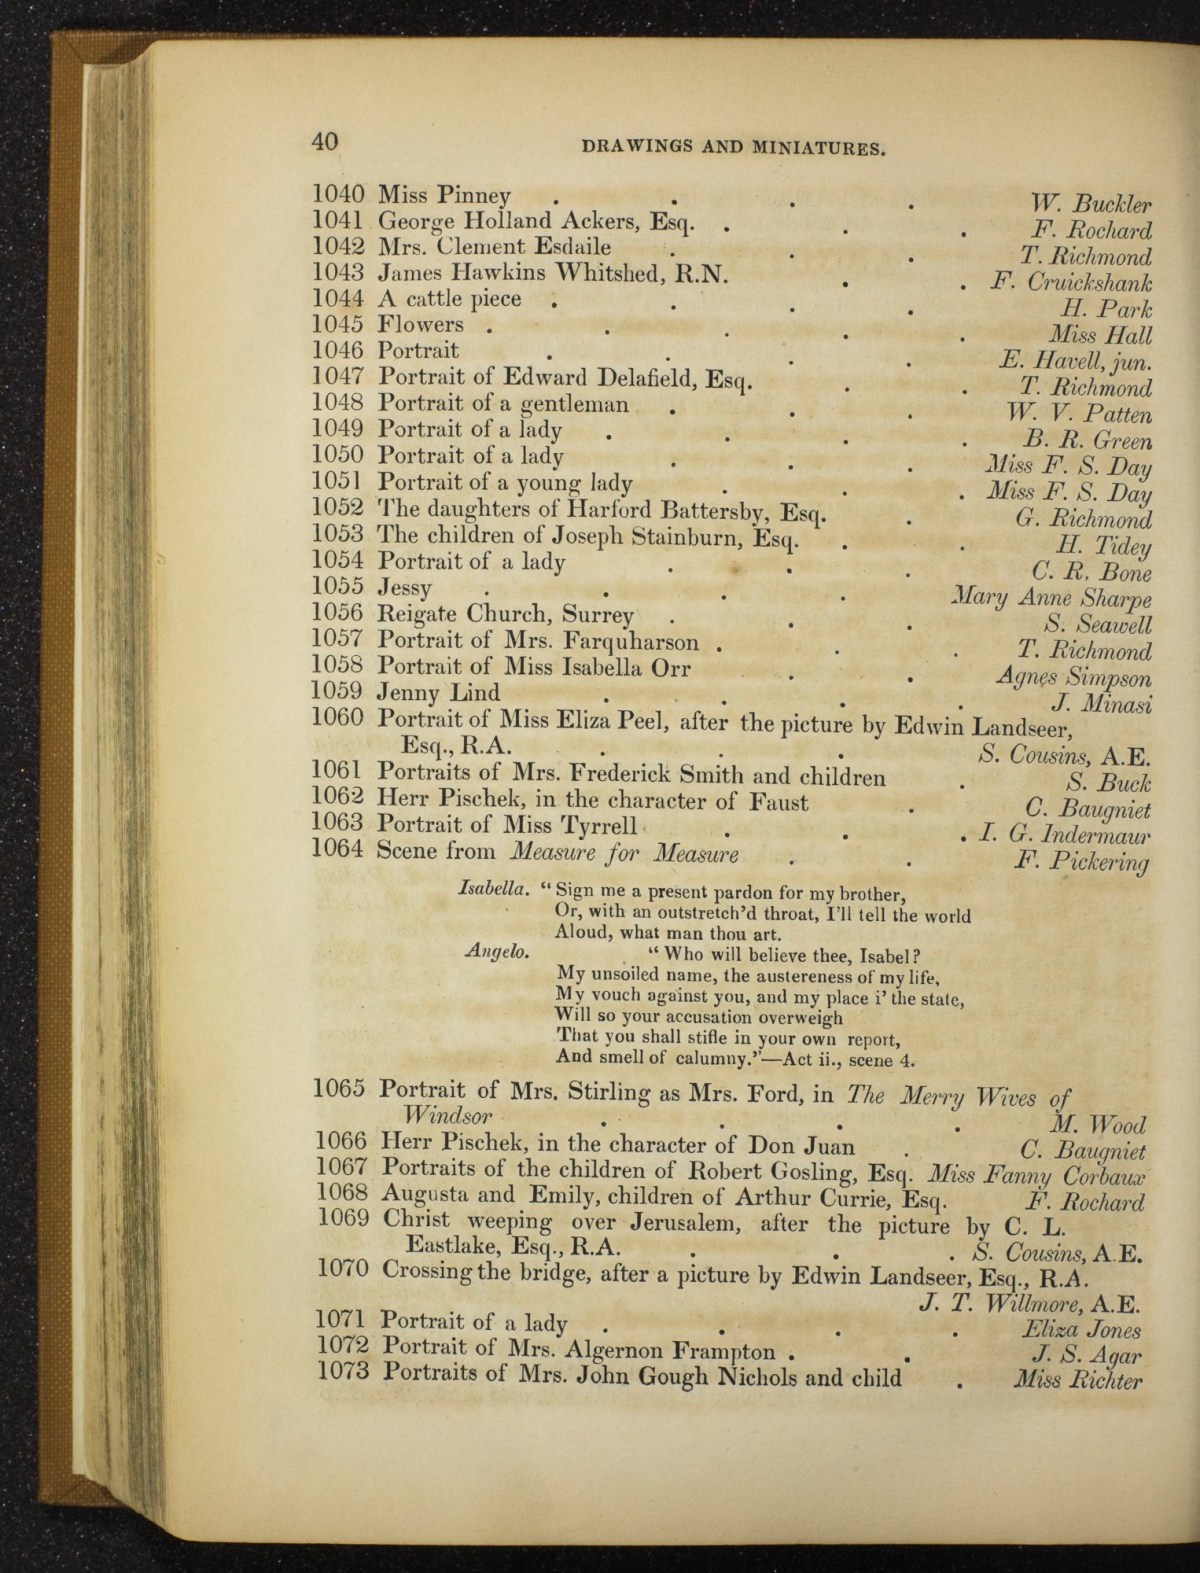 40 DRAWINGS AND MINIATURES.
1040 Miss Pinney . . . . W. Buckler
1041 George Holland Ackers, Esq. . . . F. Rochard
1042 Mrs. Clement Esdaile . . . T. Richmond
1043 James Hawkins Whitshed, R.N. . . F. Cruickshank
1044 A cattle piece . . . . H. Park
1045 Flowers . . . . . Miss Hall
1046 Portrait . . . . E. Havell, jun.
1047 Portrait of Edward Delafield, Esq. . . T. Richmond
1048 Portrait of a gentleman . . . W. V. Patten
1049 Portrait of a lady . . . . B. R. Green
1050 Portrait of a lady . . . Miss F. S. Day
1051 Portrait of a young lady . . . Miss F. S. Day
1052 The daughters of Harford Battersby, Esq. . G. Richmond
1053 The children of Joseph Stainburn, Esq. . . H. Tidey
1054 Portrait of a lady . . . C. R. Bone
1055 Jessy . . . . Mary Anne Sharpe
1056 Reigate Church, Surrey . . . S. Seawell
1057 Portrait of Mrs. Farquharson . . . T. Richmond
1058 Portrait of Miss Isabella Orr . . Agnes Simpson
1059 Jenny Lind . . . . J. Minasi
1060 Portrait of Miss Eliza Peel, after the picture by Edwin Landseer,
Esq., R.A. . . . S. Cousins, A.E.
1061 Portraits of Mrs. Frederick Smith and children . S. Buck
1062 Herr Pischek, in the character of Faust . C. Baugniet
1063 Portrait of Miss Tyrrell . . . I. G. Indermaur
1064 Scene from Measure for Measure . . F. Pickering
Isabella. “ Sign me a present pardon for my brother,
Or, with an outstretch’d throat, I’ll tell the world
Aloud, what man thou art.
Angelo. “ Who will believe thee, Isabel?
My unsoiled name, the austereness of my life,
My vouch against you, and my place i’ the state,
Will so your accusation overweigh
That you shall stifle in your own report,
And smell of calumny.”—Act ii., scene 4.
1065 Portrait of Mrs. Stirling as Mrs. Ford, in The Merry Wives of
Windsor . . . . M. Wood
1066 Herr Pischek, in the character of Don Juan . C. Baugniet
1067 Portraits of the children of Robert Gosling, Esq. Miss Fanny Corbaux
1068 Augusta and Emily, children of Arthur Currie, Esq. F. Rochard
1069 Christ weeping over Jerusalem, after the picture by C. L.
Eastlake, Esq., R.A. . . . S. Cousins, A.E.
1070 Crossing the bridge, after a picture by Edwin Landseer, Esq., R.A.
J. T. Willmore, A.E.
1071 Portrait of a lady . . . . Eliza Jones
1072 Portrait of Mrs. Algernon Frampton . . J. S. Agar
1073 Portraits of Mrs. John Gough Nichols and child . Miss Richter